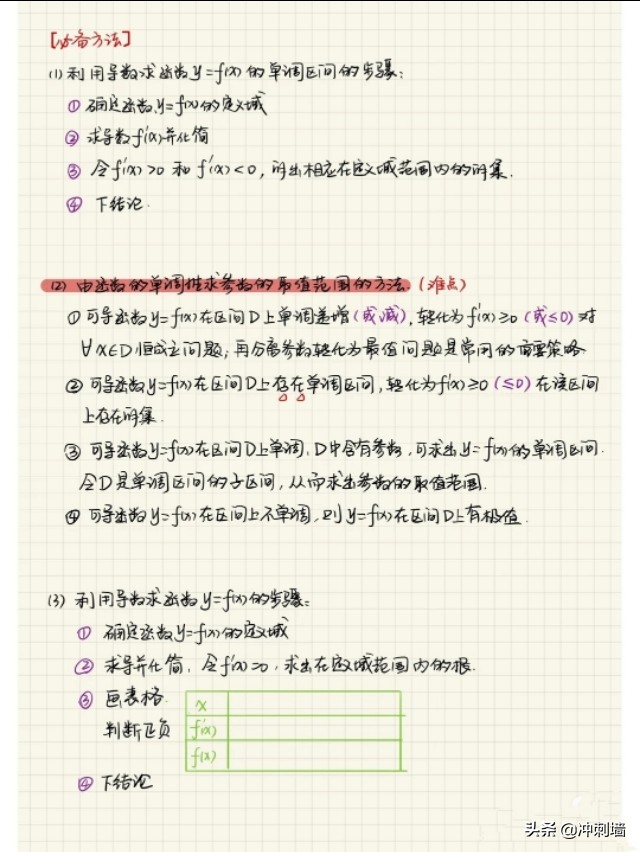 [必备方法]
(1) 利用导数求函数y=f(x)的单调区间的步骤:
① 确定函数y=f(x)的定义域
② 求导数f'(x)并化简
③ 令f'(x)>0 和 f'(x)<0, 解出相应在定义域范围内的解集.
④ 下结论.
(2) 由函数的单调性求参数的取值范围的方法. (难点)
① 可导函数y=f(x)在区间D上单调递增(或减), 转化为f'(x)≥0 (或≤0) 对
∀x∈D恒成立问题, 再分离参数转化为最值问题是常用的重要策略
② 可导函数y=f(x)在区间D上存在单调区间, 转化为f'(x)≥0 (≤0) 在该区间
上存在解集.
③ 可导函数y=f(x)在区间D上单调, D中含有参数, 可求出y=f(x)的单调区间.
令D是单调区间的子区间, 从而求出参数的取值范围.
④ 可导函数y=f(x)在区间上不单调, 则y=f(x)在区间D上有极值.
(3) 利用导数求函数y=f(x)的步骤:
① 确定函数y=f(x)的定义域
② 求导并化简, 令f'(x)=0, 求出在定义域范围内的根.
③ 画表格.
判断正负
x
f'(x)
f(x)
④ 下结论
头条 @冲刺墙